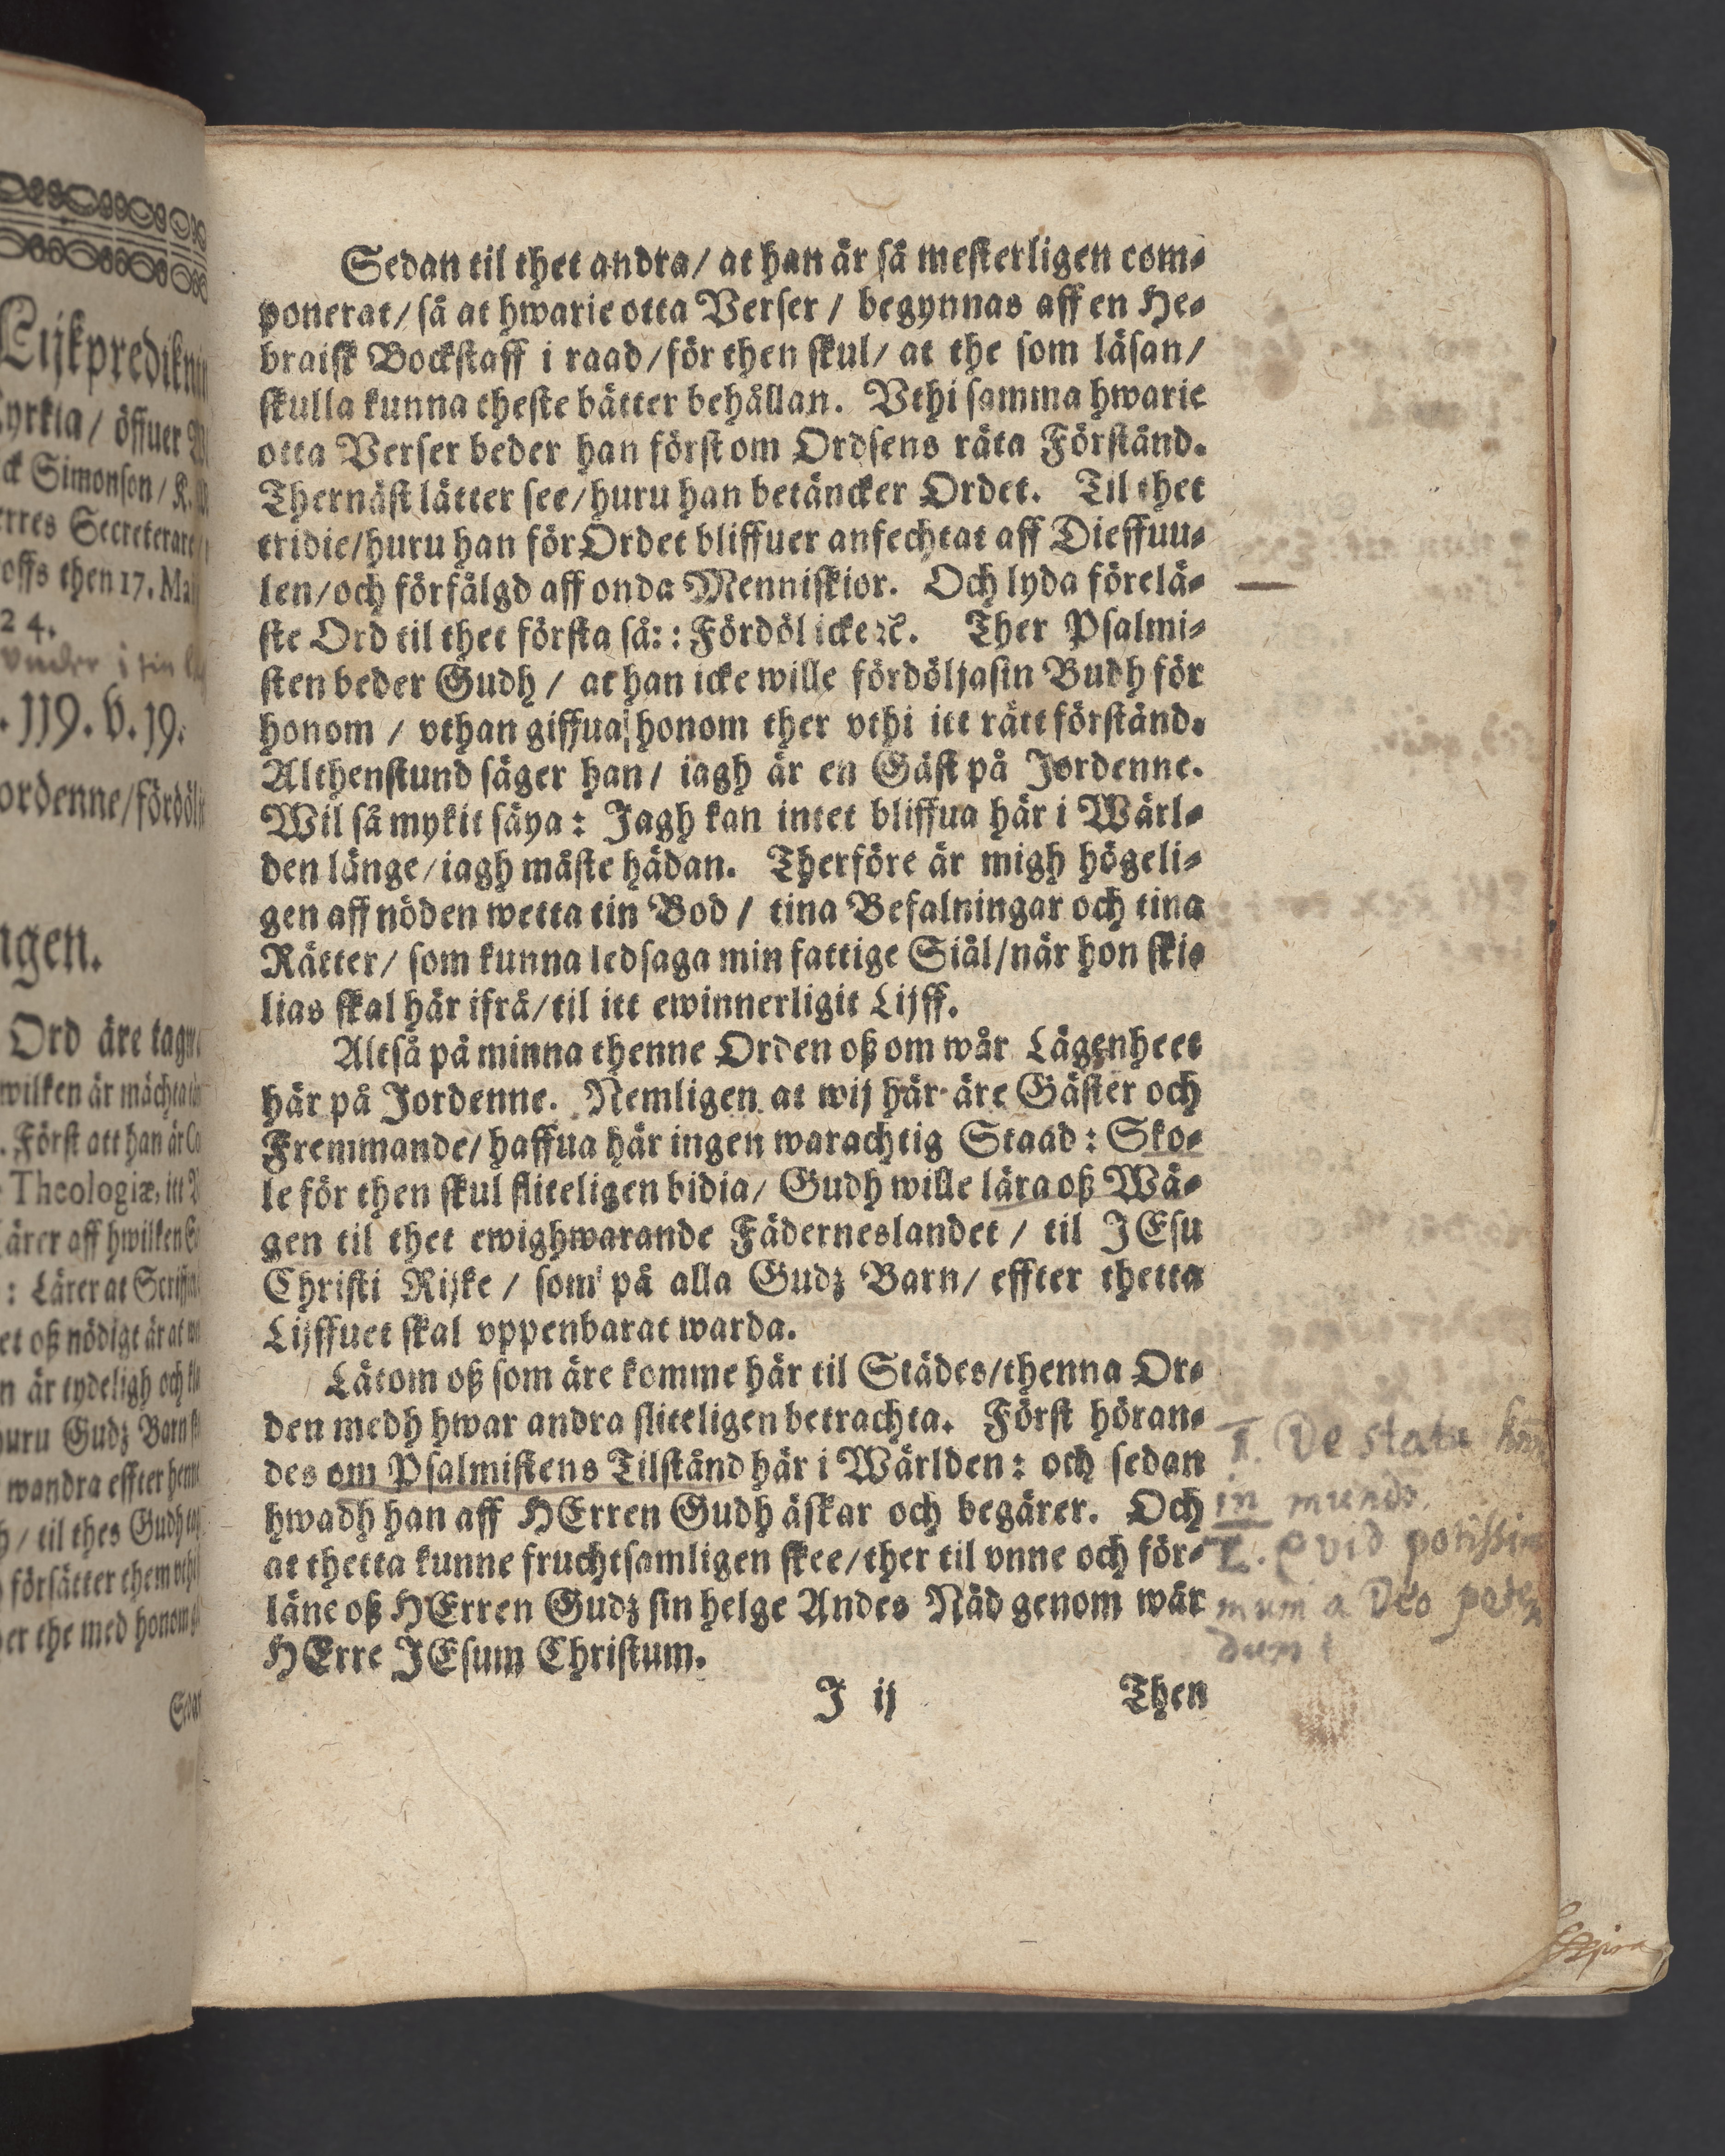 Lijkpredikni
yrkia / öffuer
ck Simonson / K.
rres Secreterare
offs then 17. Maij
24.
119. v. 19.
ordenne/fördölj
ngen.
Ord äre tagn
wilken är mächta
. Först att han är
Theologiæ, itt
lärer aff hwilken
: Lärer at Scrifft
et oß nödigt är at
n är tydeligh och
huru Gudz Barn
wandra effter henne
h / til thes Gudh
försätter them vthi
er the med honom
Sedan til thet andra/ at han är så mesterligen com⸗
ponerat/ så at hwarie otta Verser / begynnas aff en He⸗
braisk Bockstaff i raad/för then skul/ at the som läsan/
skulla kunna theste bätter behållan. Vthi samma hwarie
otta Verser beder han först om Ordsens räta Förständ.
Thernäst lätter see/huru han betäncker Ordet. Til thet
tridie/huru han för Ordet bliffuer anfechtat aff Dieffuu⸗
len/och förfålgd aff onda Menniskior. Och lyda förelä⸗
ste Ord til thet första så: : Fördöl icke ꝛc. Ther Psalmi⸗
sten beder Gudh / at han icke wille fördölja sin Budh för
honom / vthan giffua honom ther vthi itt rätt förständ.
Althenstund säger han/ iagh är en Gäst på Jordenne.
Wil så mykit säya: Jagh kan intet bliffua här i Wärl⸗
den länge/iagh måste hädan. Therföre är migh högeli⸗
gen aff nöden wetta tin Bod / tina Befalningar och tina
Rätter/ som kunna ledsaga min fattige Siäl/när hon ski⸗
lias skal här ifrå/til itt ewinnerligit Lijff.
Altså på minna thenne Orden oß om wår Lägenheet
här på Jordenne. Nemligen at wij här äre Gäster och
Fremmande/ haffua här ingen warachtig Staad: Sko⸗
le för then skul fliteligen bidia/ Gudh wille lära oß Wä⸗
gen til thet ewighwarande Fäderneslandet / til JEsu
Christi Rijke / som på alla Gudz Barn/ effter thetta
Lijffuet skal vppenbarat warda.
Låtom oß som äre komme här til Städes/thenna Or⸗
den medh hwar andra fliteligen betrachta. Först höran⸗
des om Psalmistens Tilständ här i Wärlden: och sedan
hwadh han aff HErren Gudh äskar och begärer. Och
at thetta kunne fruchtsamligen skee/ther til vnne och för⸗
läne oß HErren Gudz sin helge Andes Nåd genom wår
HErre JEsum Christum.
J ij Then
I. De statu
in mundo.
II. Qvid potissi
mum a Deo peten
dum